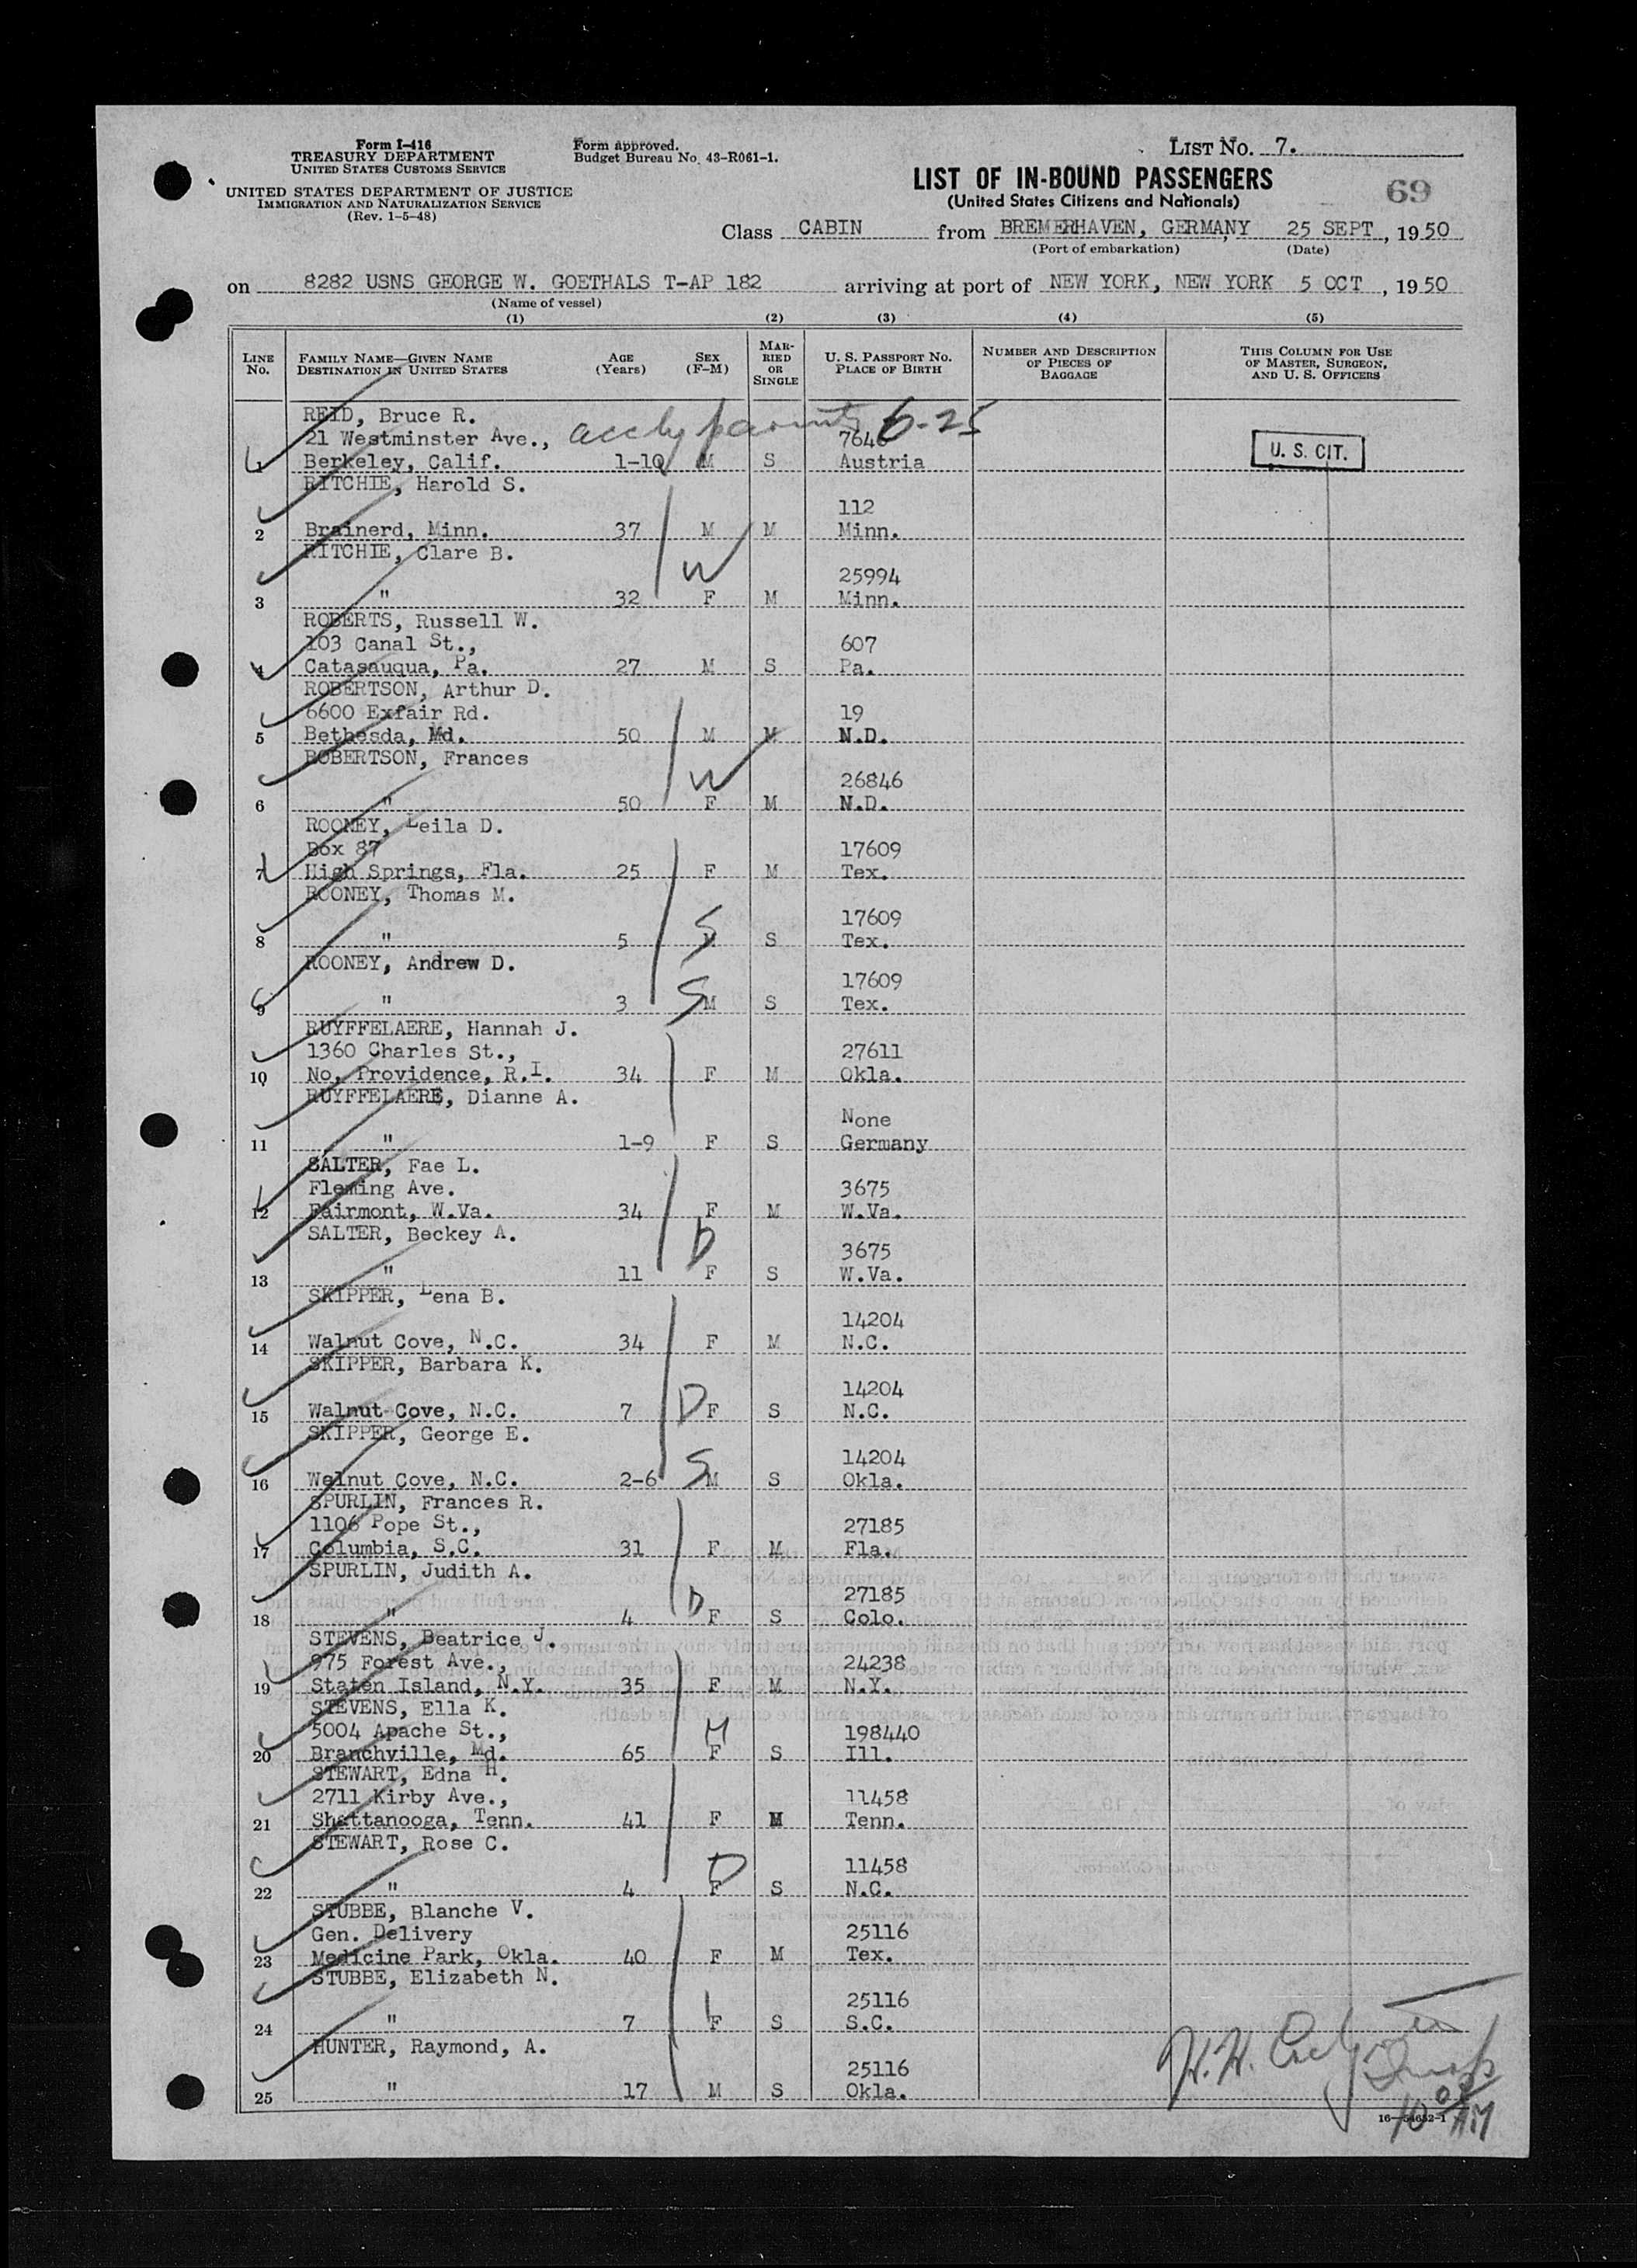 Form I-416
TREASURY DEPARTMENT
UNITED STATES CUSTOMS SERVICE
UNITED STATES DEPARTMENT OF JUSTICE
IMMIGRATION AND NATURALIZATION SERVICE
(Rev. 1-5-48)
Form approved.
Budget Bureau No. 43-R061-1.
LIST NO. 7.
LIST OF IN-BOUND PASSENGERS
(United States Citizens and Nationals)
69
Class CABIN from BREMERHAVEN, GERMANY 25 SEPT, 1950
(Port of embarkation) (Date)
on 8282 USNS GEORGE W. GOETHALS T-AP 182 arriving at port of NEW YORK, NEW YORK 5 OCT, 1950
(Name of vessel)
(1) (2) (3) (4) (5)
LINE NO. FAMILY NAME—GIVEN NAME DESTINATION IN UNITED STATES AGE (Years) SEX (F-M) MARRIED OR SINGLE U. S. PASSPORT NO. PLACE OF BIRTH NUMBER AND DESCRIPTION OF PIECES OF BAGGAGE THIS COLUMN FOR USE OF MASTER, SURGEON, AND U. S. OFFICERS
REID, Bruce R.
21 Westminster Ave., 6-25
1 Berkeley, Calif. 1-10 M S Austria U. S. CIT.
RITCHIE, Harold S.
112
2 Brainerd, Minn. 37 M M Minn.
RITCHIE, Clare B.
W 25994
3 " 32 F M Minn.
ROBERTS, Russell W.
103 Canal St., 607
4 Catasauqua, Pa. 27 M S Pa.
ROBERTSON, Arthur D.
6600 Exfair Rd. 19
5 Bethesda, Md. 50 M M N.D.
ROBERTSON, Frances
W 26846
6 " 50 F M N.D.
ROONEY, Leila D.
Box 87 17609
7 High Springs, Fla. 25 F M Tex.
ROONEY, Thomas M.
S 17609
8 " 5 M S Tex.
ROONEY, Andrew D.
17609
9 " 3 S M S Tex.
RUYFFELAERE, Hannah J.
1360 Charles St., 27611
10 No. Providence, R.I. 34 F M Okla.
RUYFFELAERE, Dianne A.
None
11 " 1-9 F S Germany
SALTER, Fae L.
Fleming Ave. 3675
12 Fairmont, W.Va. 34 F M W.Va.
SALTER, Beckey A.
D 3675
13 " 11 F S W.Va.
SKIPPER, Lena B.
14204
14 Walnut Cove, N.C. 34 F M N.C.
SKIPPER, Barbara K.
14204
15 Walnut Cove, N.C. 7 D F S N.C.
SKIPPER, George E.
14204
16 Walnut Cove, N.C. 2-6 S M S Okla.
SPURLIN, Frances R.
1106 Pope St., 27185
17 Columbia, S.C. 31 F M Fla.
SPURLIN, Judith A.
27185
18 " 4 D F S Colo.
STEVENS, Beatrice J.
975 Forest Ave., 24238
19 Staten Island, N.Y. 35 F M N.Y.
STEVENS, Ella K.
5004 Apache St., M 198440
20 Branchville, Md. 65 F S Ill.
STEWART, Edna H.
2711 Kirby Ave., 11458
21 Shattanooga, Tenn. 41 F M Tenn.
STEWART, Rose C.
D 11458
22 " 4 F S N.C.
STUBBE, Blanche V.
Gen. Delivery 25116
23 Medicine Park, Okla. 40 F M Tex.
STUBBE, Elizabeth N.
25116
24 " 7 F S S.C.
HUNTER, Raymond, A.
25116
25 " 17 M S Okla.
H.H.
10 00 AM
16—54652-1